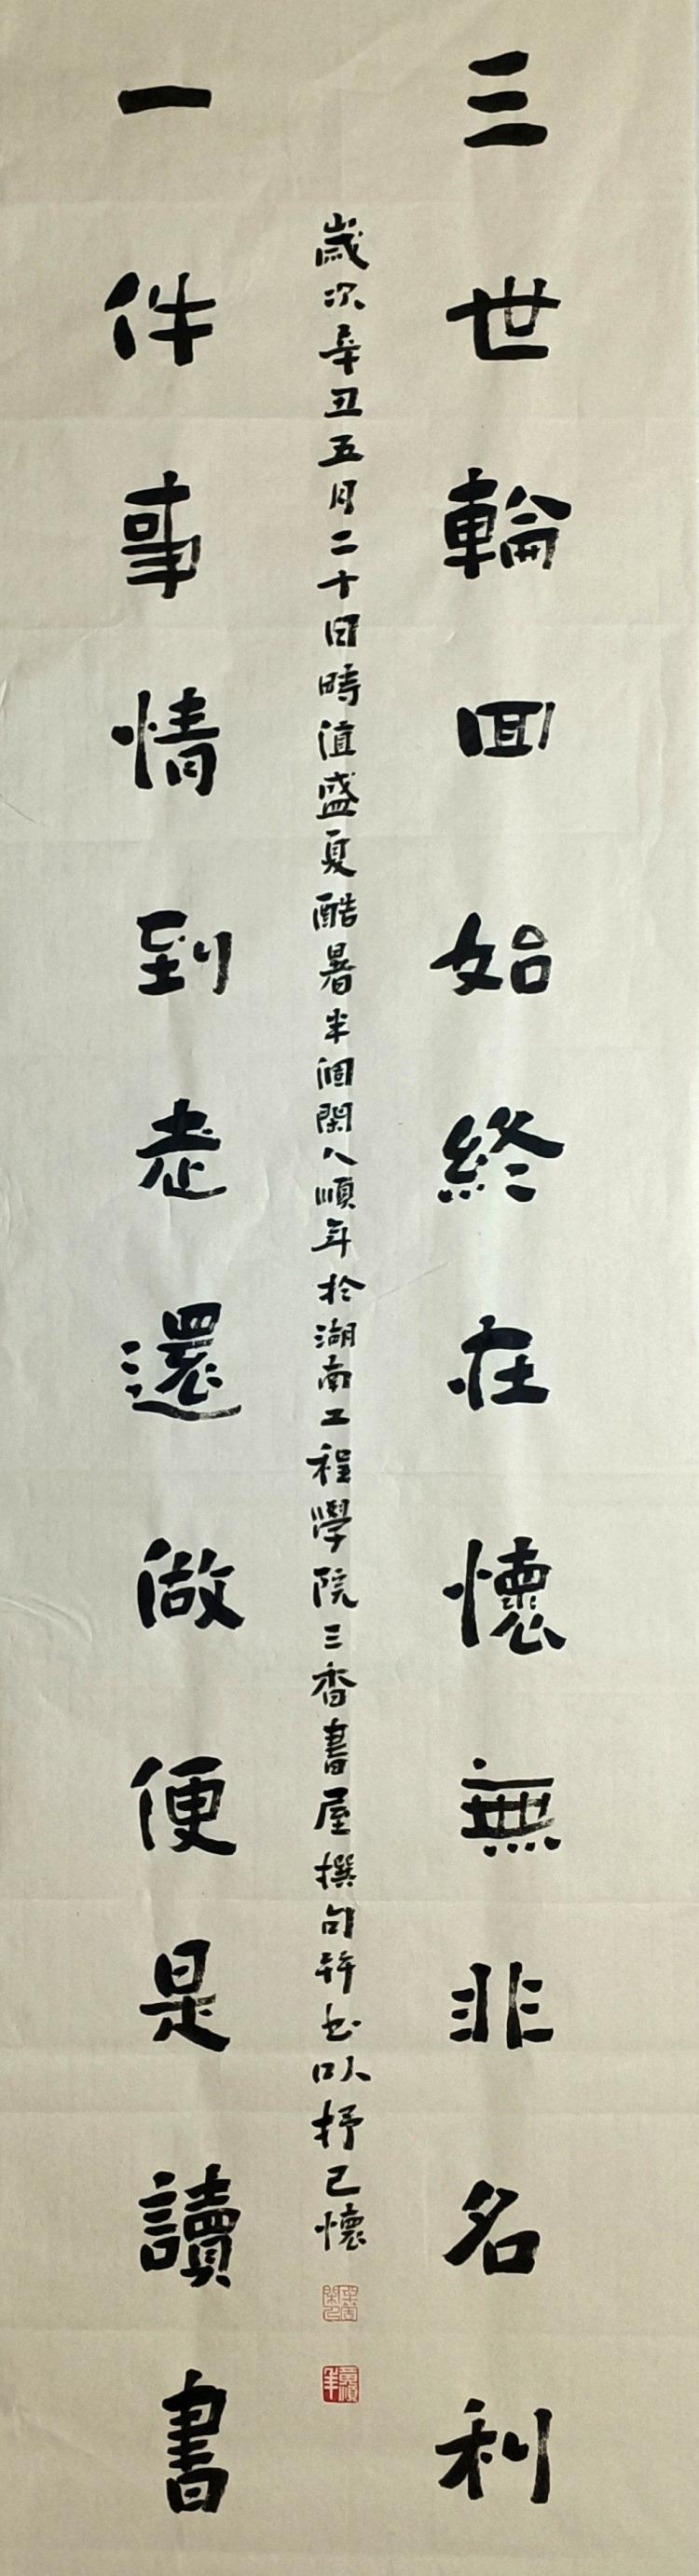 三世輪回始終在懷無非名利
歲次辛丑五月二十日時值盛夏酷暑半個閑人順年於湖南工程學院三香書屋撰句並書以抒己懷
一件事情到老還做便是讀書